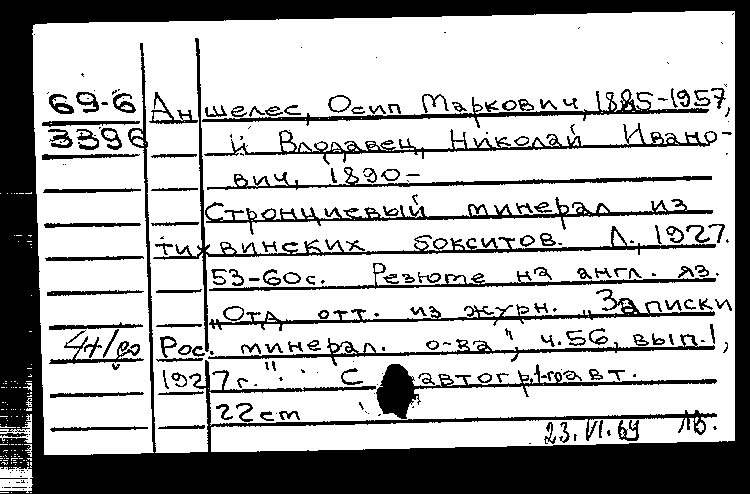 69-6 Аншелес, Осип Маркович, 1885-1957,
3396 и Влодавец, Николай Ивано-
вич, 1890-
Стронциевый минерал из
тихвинских бокситов. Л., 1927.
53-60с. Резюме на англ. яз.
"Отд. отт. из журн. "Записки
Рос. минерал. о-ва", ч.56, вып.1,
1927г.". С автогр. авт.
22cm
23.VI.69